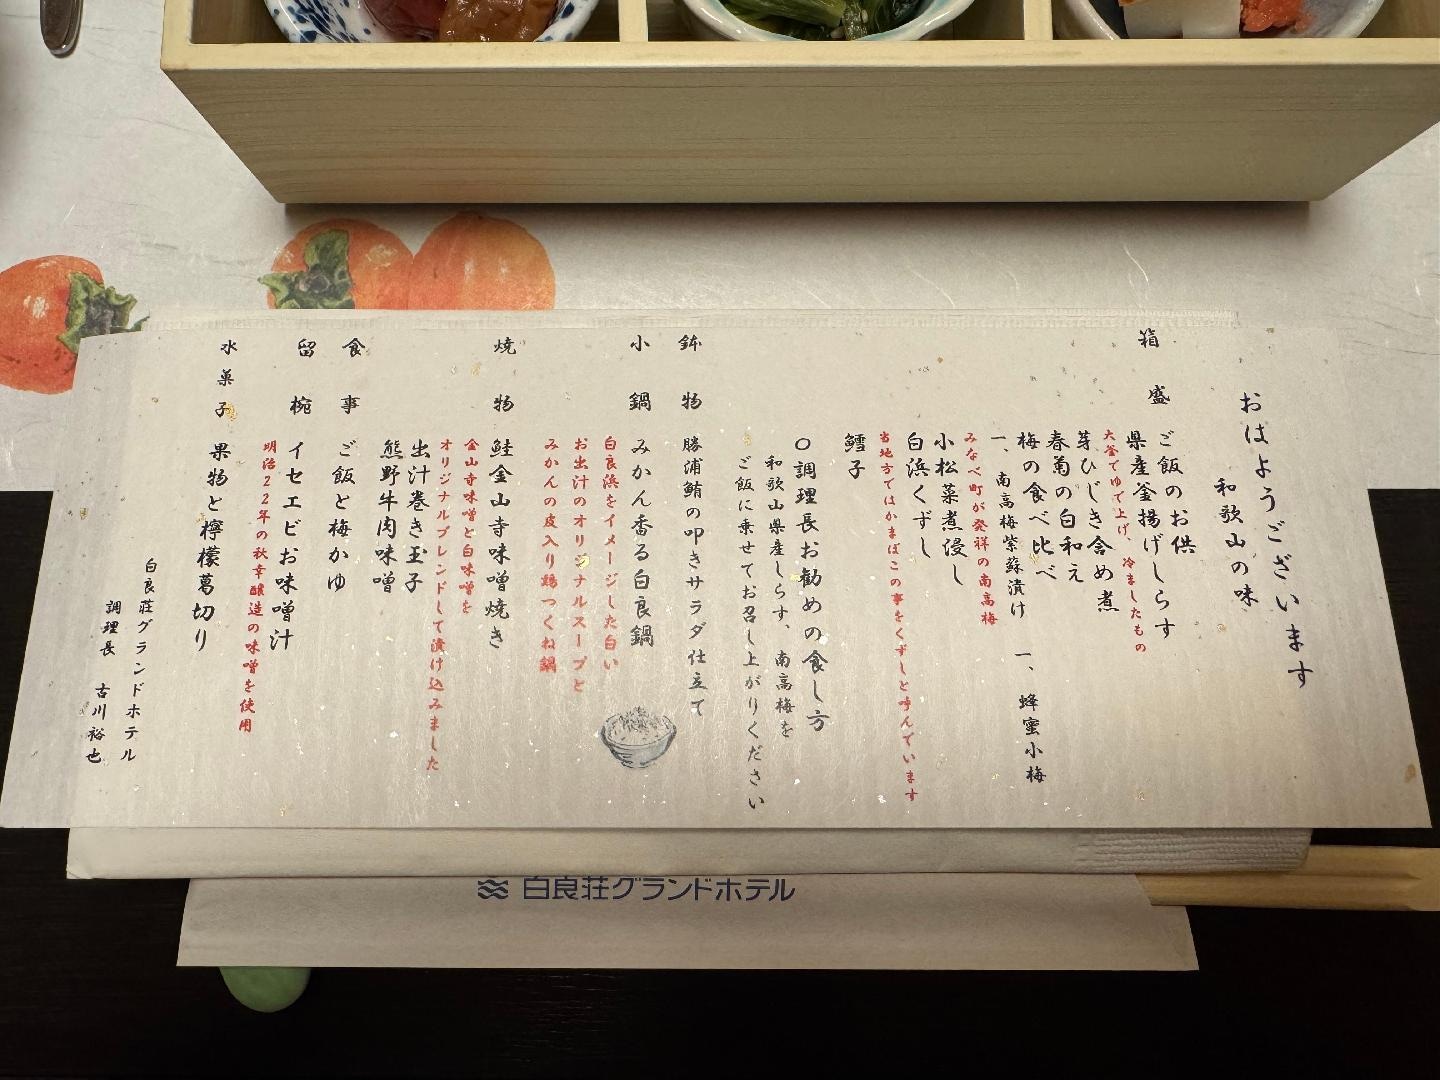 おはようございます
和歌山の味
箱盛
ご飯のお供
県産釜揚げしらす
大釜でゆで上げ、冷ましたもの
芽ひじき含め煮
春菊の白和え
梅の食べ比べ
一、南高梅紫蘇漬け 一、蜂蜜小梅
みなべ町が発祥の南高梅
小松菜煮浸し
白浜くずし
当地方ではかまぼこの事をくずしと呼んでいます
鱈子
〇調理長お勧めの食し方
和歌山県産しらす、南高梅を
ご飯に乗せてお召し上がりください
鉢物 勝浦鮪の叩きサラダ仕立て
小鍋 みかん香る白良鍋
白良浜をイメージした白い
お出汁のオリジナルスープと
みかんの皮入り鶏つくね鍋
焼物 鮭金山寺味噌焼き
金山寺味噌と白味噌を
オリジナルブレンドして漬け込みました
出汁巻き玉子
熊野牛肉味噌
食事 ご飯と梅かゆ
留椀 イセエビお味噌汁
明治22年の秋幸醸造の味噌を使用
水菓子 果物と檸檬葛切り
白良荘グランドホテル
調理長 古川裕也
白良荘グランドホテル